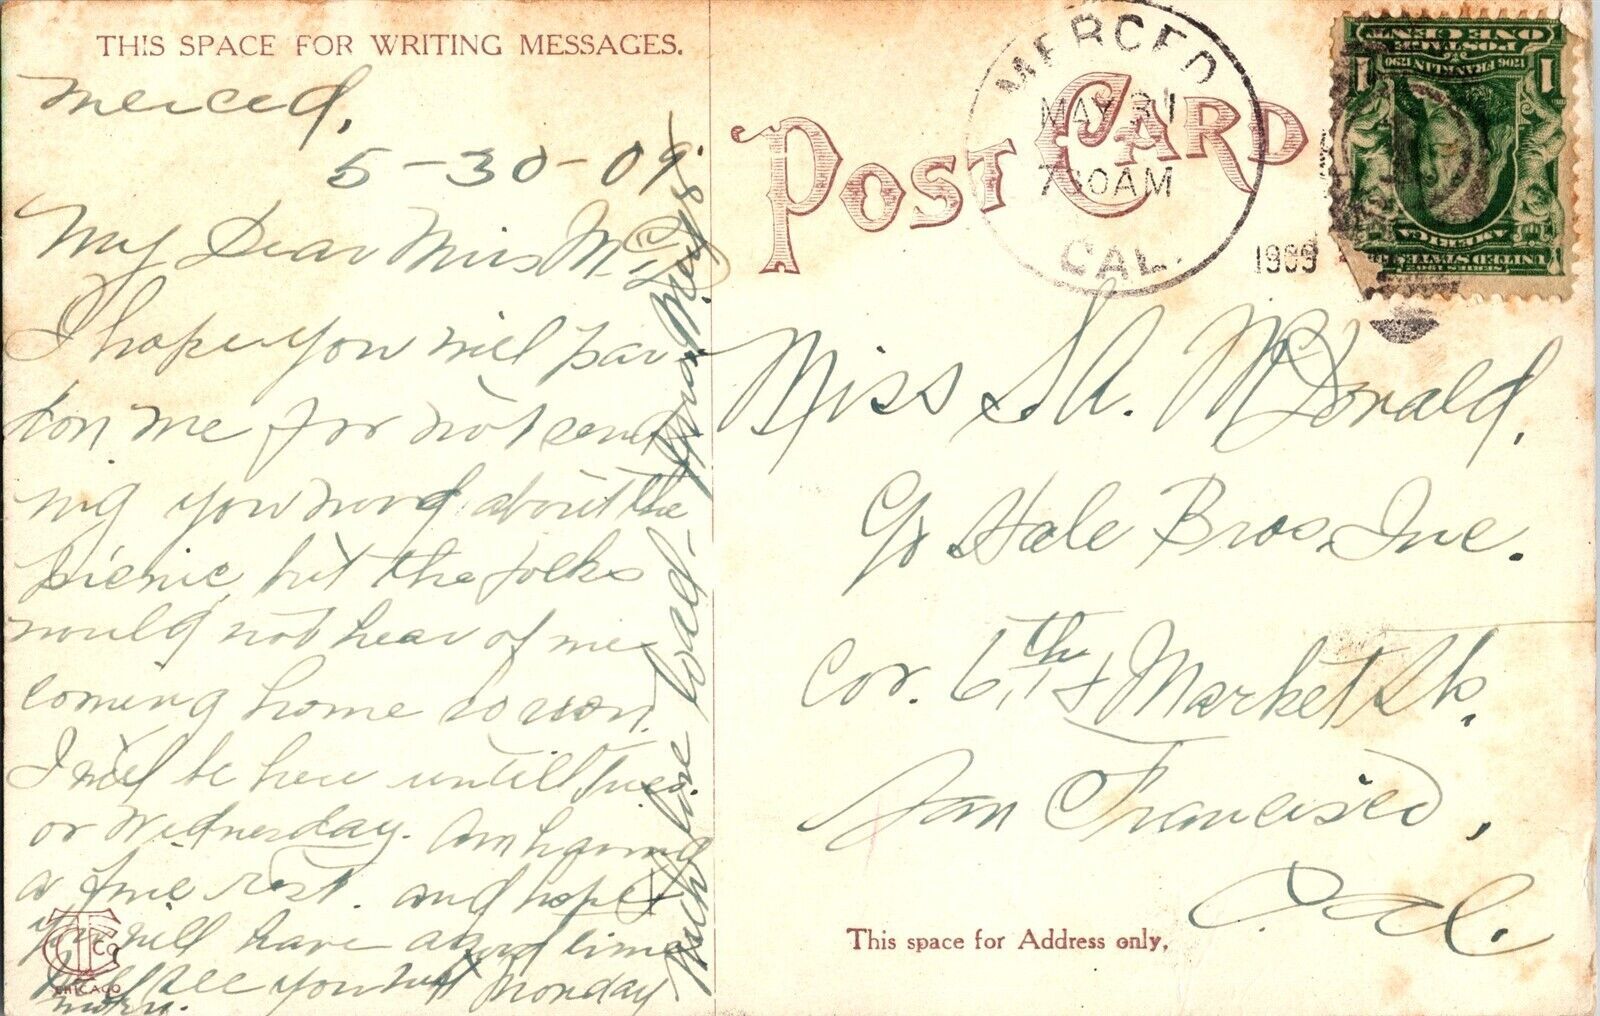 THIS SPACE FOR WRITING MESSAGES.
Merced,
5-30-09.
My Dear Miss McD
I hope you will par-
don me for not send-
ing you word about the
picnic, but the folks
would not hear of me
coming home so soon.
I will be here until Tues
or Wednesday. Am having
a fine rest. and hope
you will have a good time
Will see you next Monday
Much love
POST CARD
MERCED
MAY 31
7 30 AM
CAL.
1909
ONE CENT
POSTAGE
1706 FRANKLIN 1790
1 1
UNITED STATES OF
AMERICA
SERIES 1902
Miss S.A. McDonald,
℅ Hale Bros. Inc.
Cor. 6th & Market Sts.
San Francisco,
Cal.
This space for Address only.
CT Co
CHICAGO